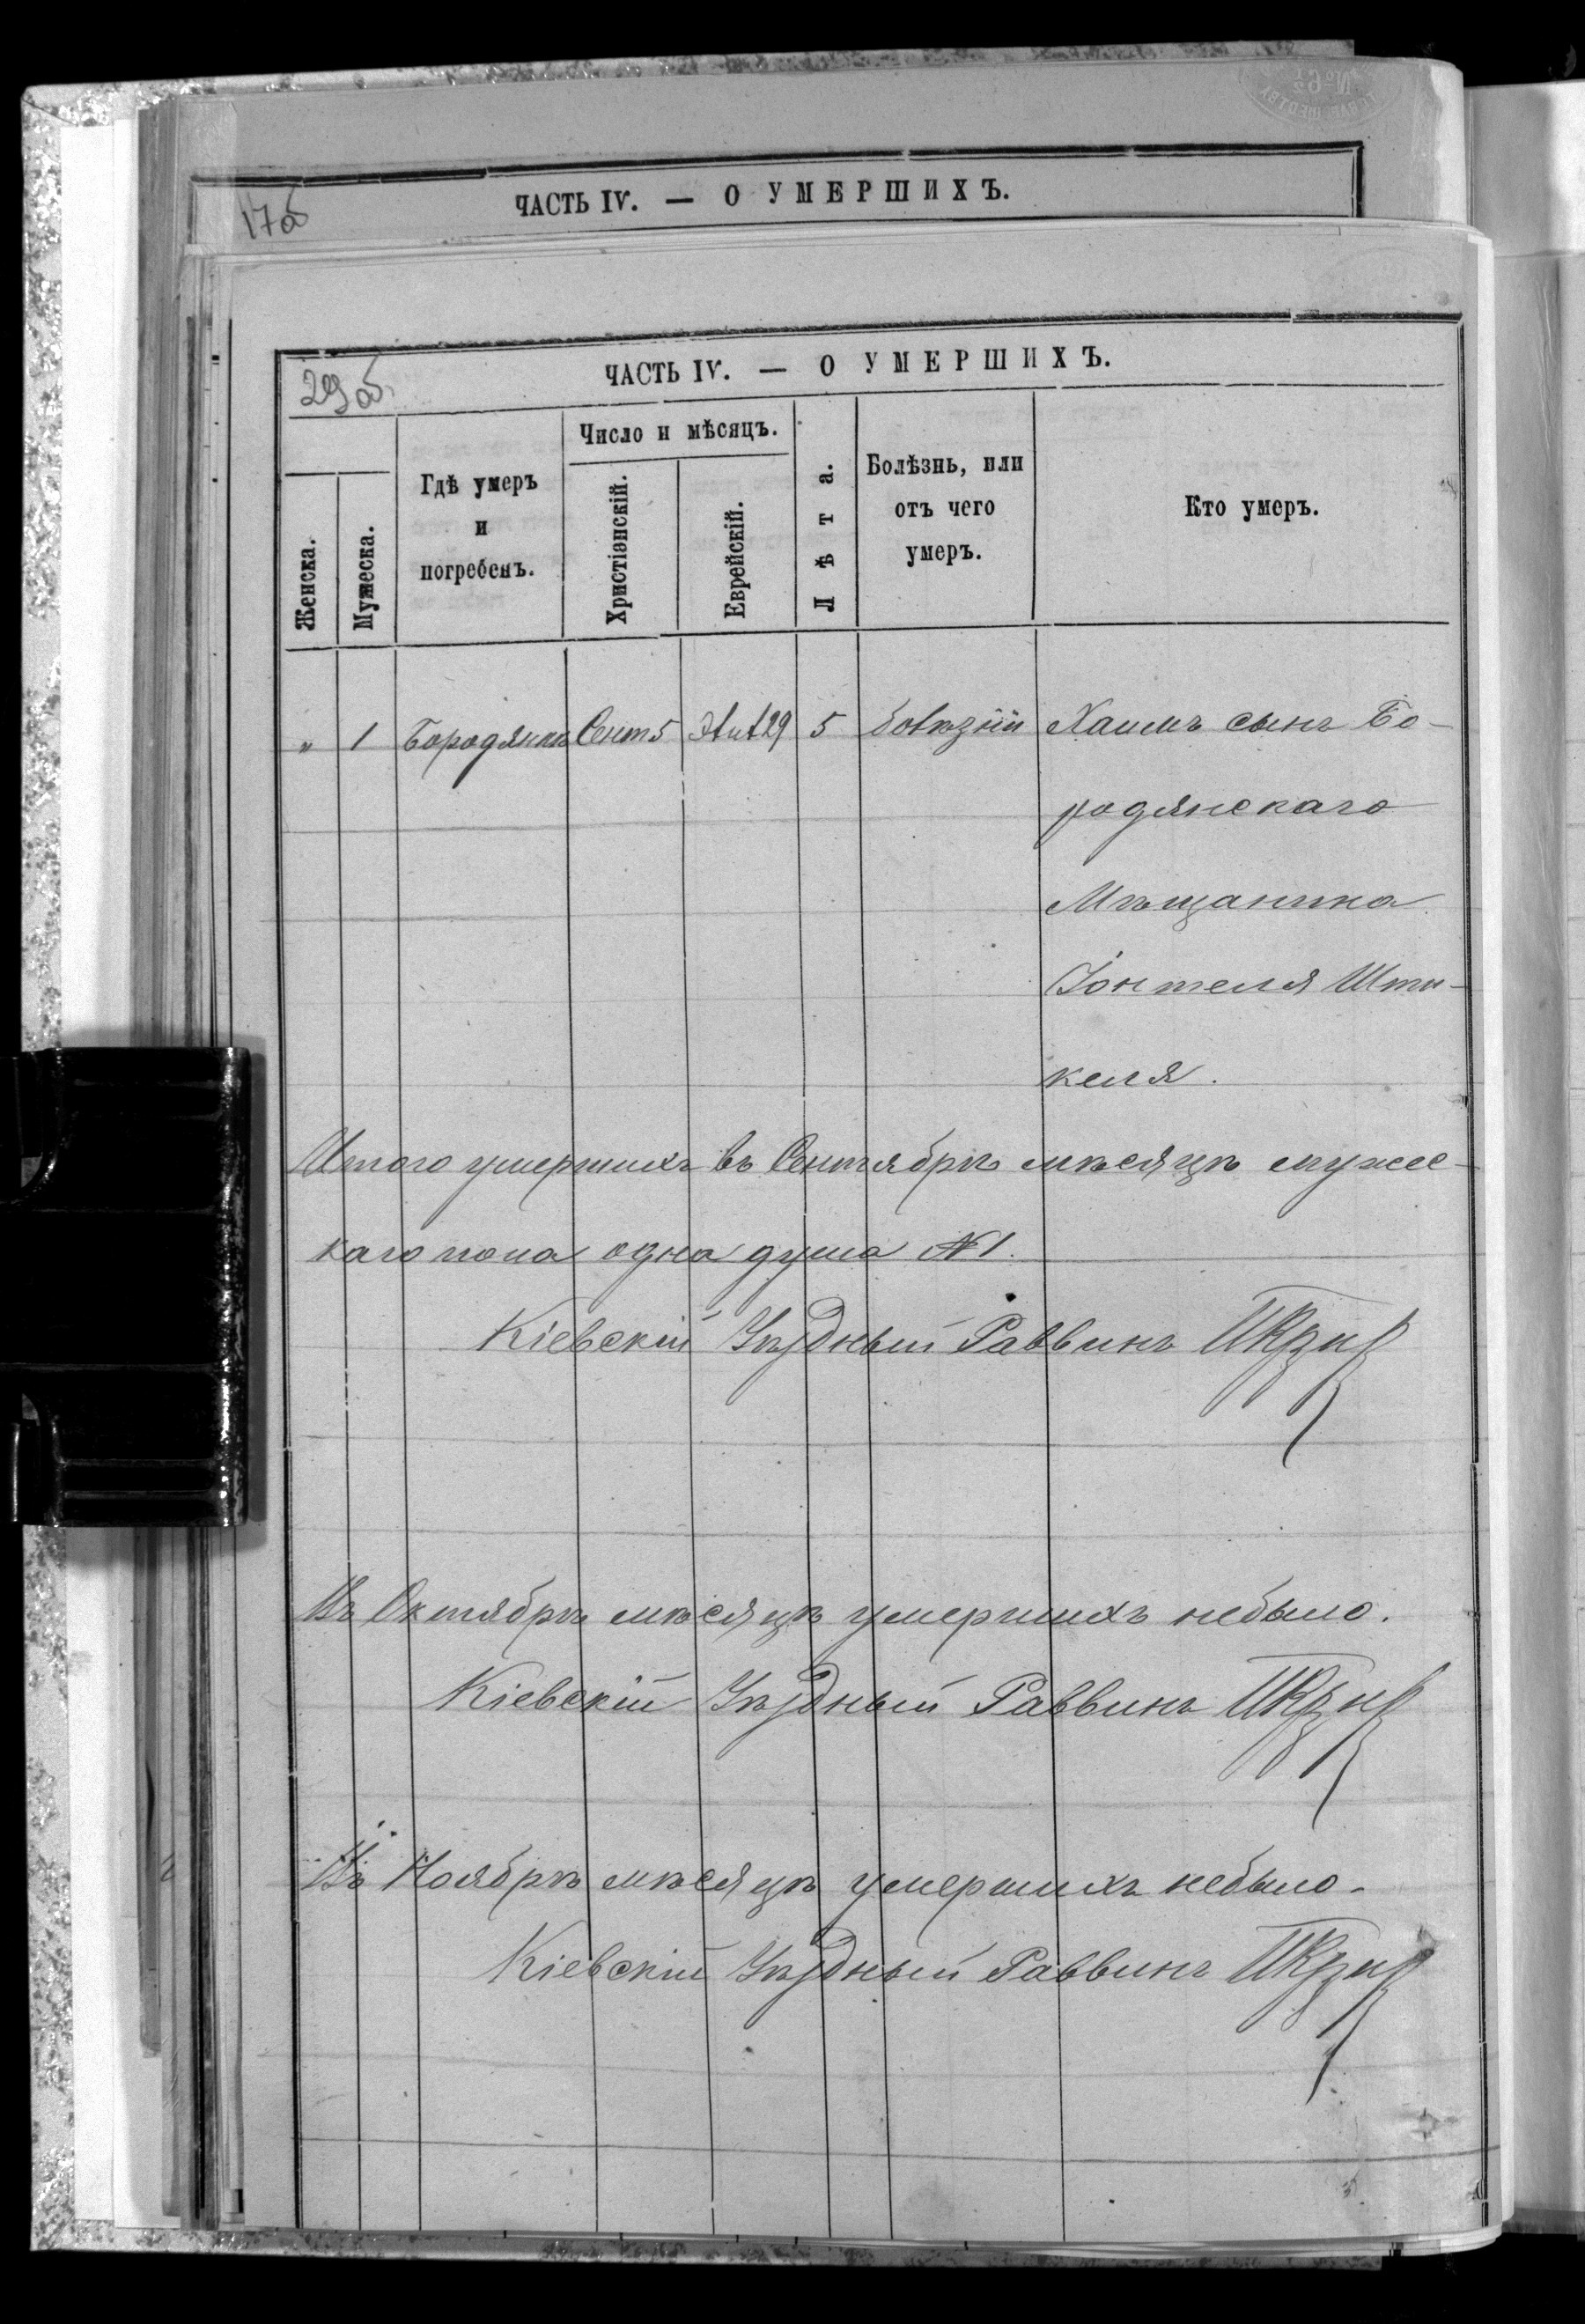 17об
ЧАСТЬ IV. — О УМЕРШИХЪ.
29об.
ЧАСТЬ IV. — О УМЕРШИХЪ.
Женска.
Мужеска.
Гдѣ умеръ
и
погребенъ.
Число и мѣсяцъ.
Христіанскій.
Еврейскій.
Лѣта.
Болѣзнь, или
отъ чего
умеръ.
Кто умеръ.
„ 1 Бородянкѣ Сент 5 29 5 Хаимъ сынъ Бо-
родянскаго
Мѣщанина
Іонтеля Шти-
келя.
Итого умершихъ въ Сентябрѣ мѣсяцѣ мужес-
каго пола одна душа №1.
Кіевскій Уѣздный Раввинъ
Въ Октябрѣ мѣсяцѣ умершихъ небыло.
Кіевскій Уѣздный Раввинъ
Въ Ноябрѣ мѣсяцѣ умершихъ небыло.
Кіевскій Уѣздный Раввинъ